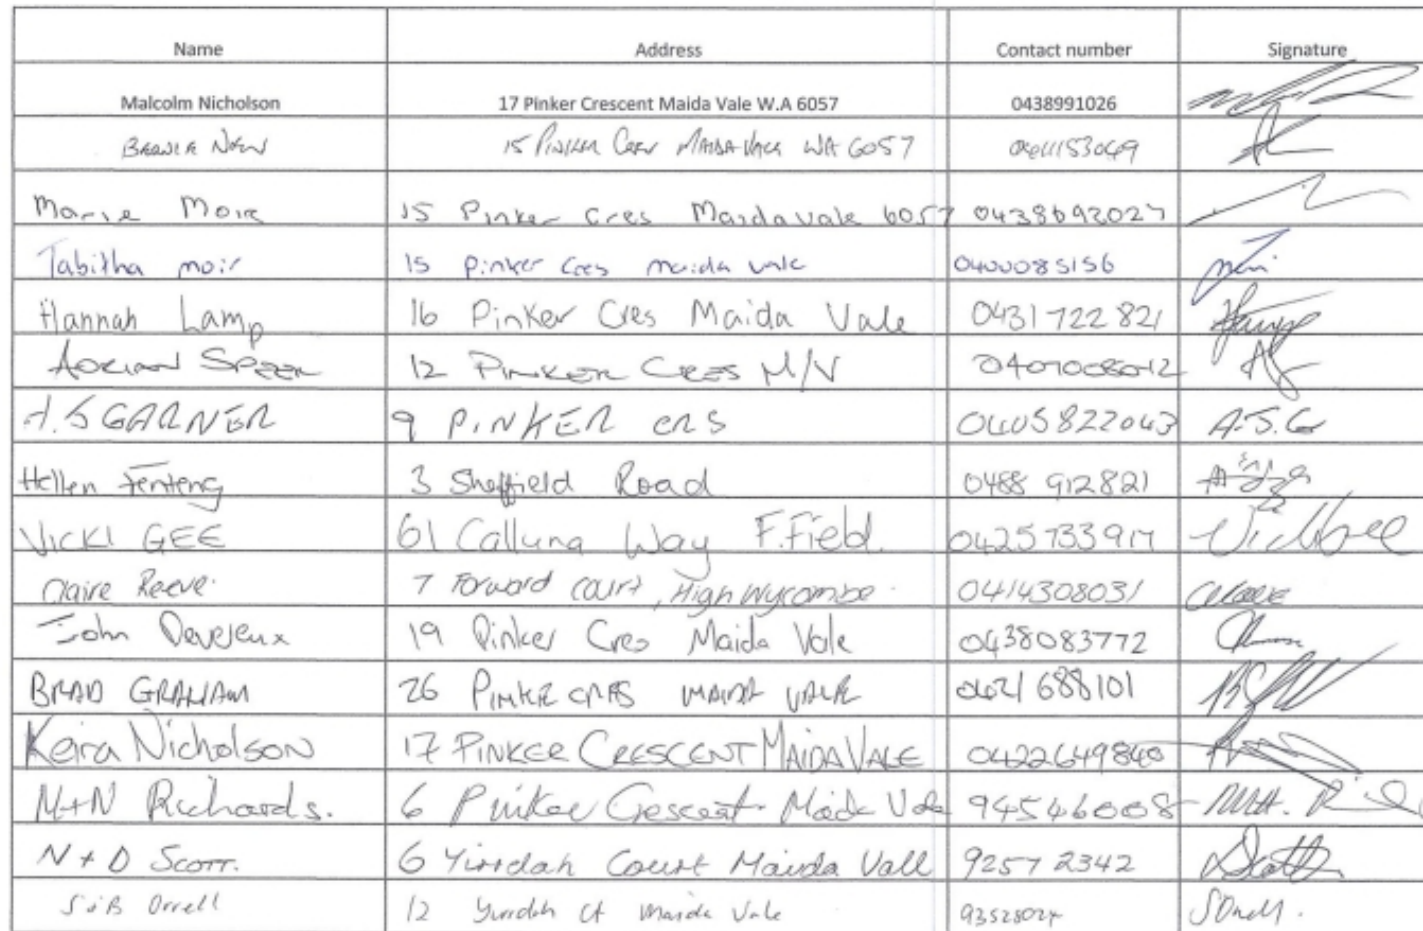 Name Address Contact number Signature
Malcolm Nicholson 17 Pinker Crescent Maida Vale W.A 6057 0438991026
15 Pinker Cres Maida Vale WA 6057
Marie Moir 15 Pinker Cres Maida Vale 6057 0438692027
Tabitha moir 15 pinker Cres maida vale 0400085156
Hannah Lamp 16 Pinker Cres Maida Vale 0431 722 821
ADRIAN SPEER 12 PINKER CRES M/V
A.J GARNER 9 PINKER CRS 0405822043 A.J.G
Hellen Fenteng 3 Sheffield Road 0488 912821
VICKI GEE 61 Calluna Way F.Field. 0425733917
Claire Reeve. 7 Forward court, High Wycombe. 0414308031 CReeve
John Devereux 19 Pinker Cres Maida Vale 0438083772
BRAD GRAHAM 26 PINKER CRES MAIDA VALE 0421 688101
Keira Nicholson 17 PINKER CRESCENT MAIDA VALE 0422649840
M+N Richards. 6 Pinker Crescent Maida Vale 94546008
N + D Scott. 6 Yirrdah Court Maida Vall 9257 2342
S + B Orrell 12 Yirrdah Ct Maida Vale SOrrell.